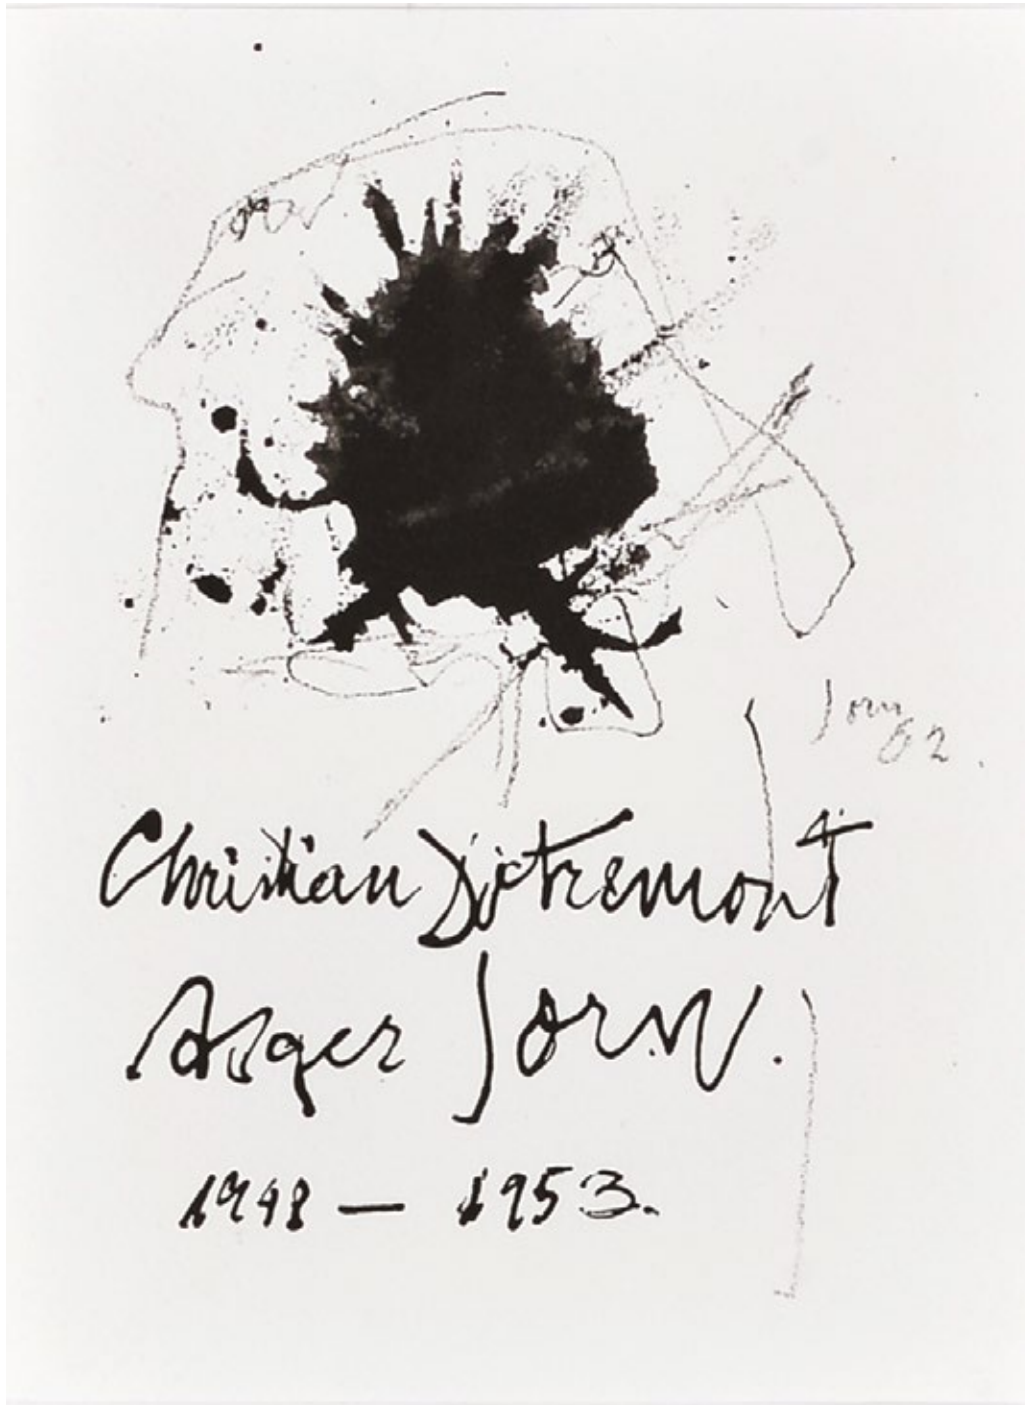 Jorn
62.
Christian Dotremont
Asger Jorn.
1948 — 1953.